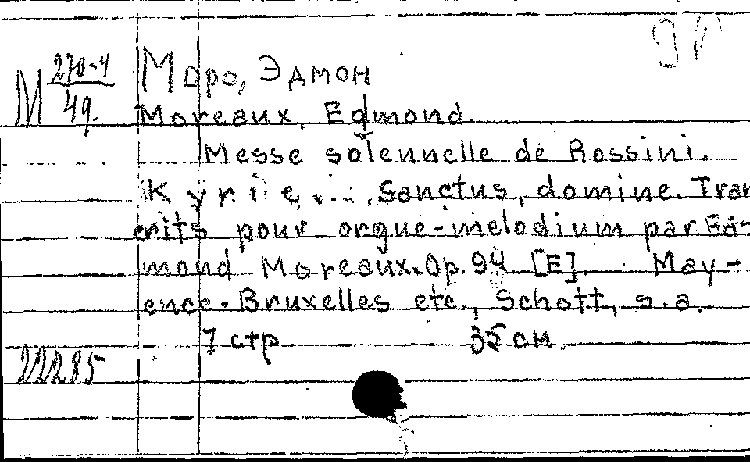 М 270-4/49
Моро, Эдмон
Moreaux, Edmond.
Messe solennelle de Rossini.
Kyrie... Sanctus, domine. Tran
crits pour orgue-melodium par Ed-
mond Moreaux. Op. 94 [E]. May-
ence-Bruxelles etc., Schott, s.a.
7 стр 35 см.
22285